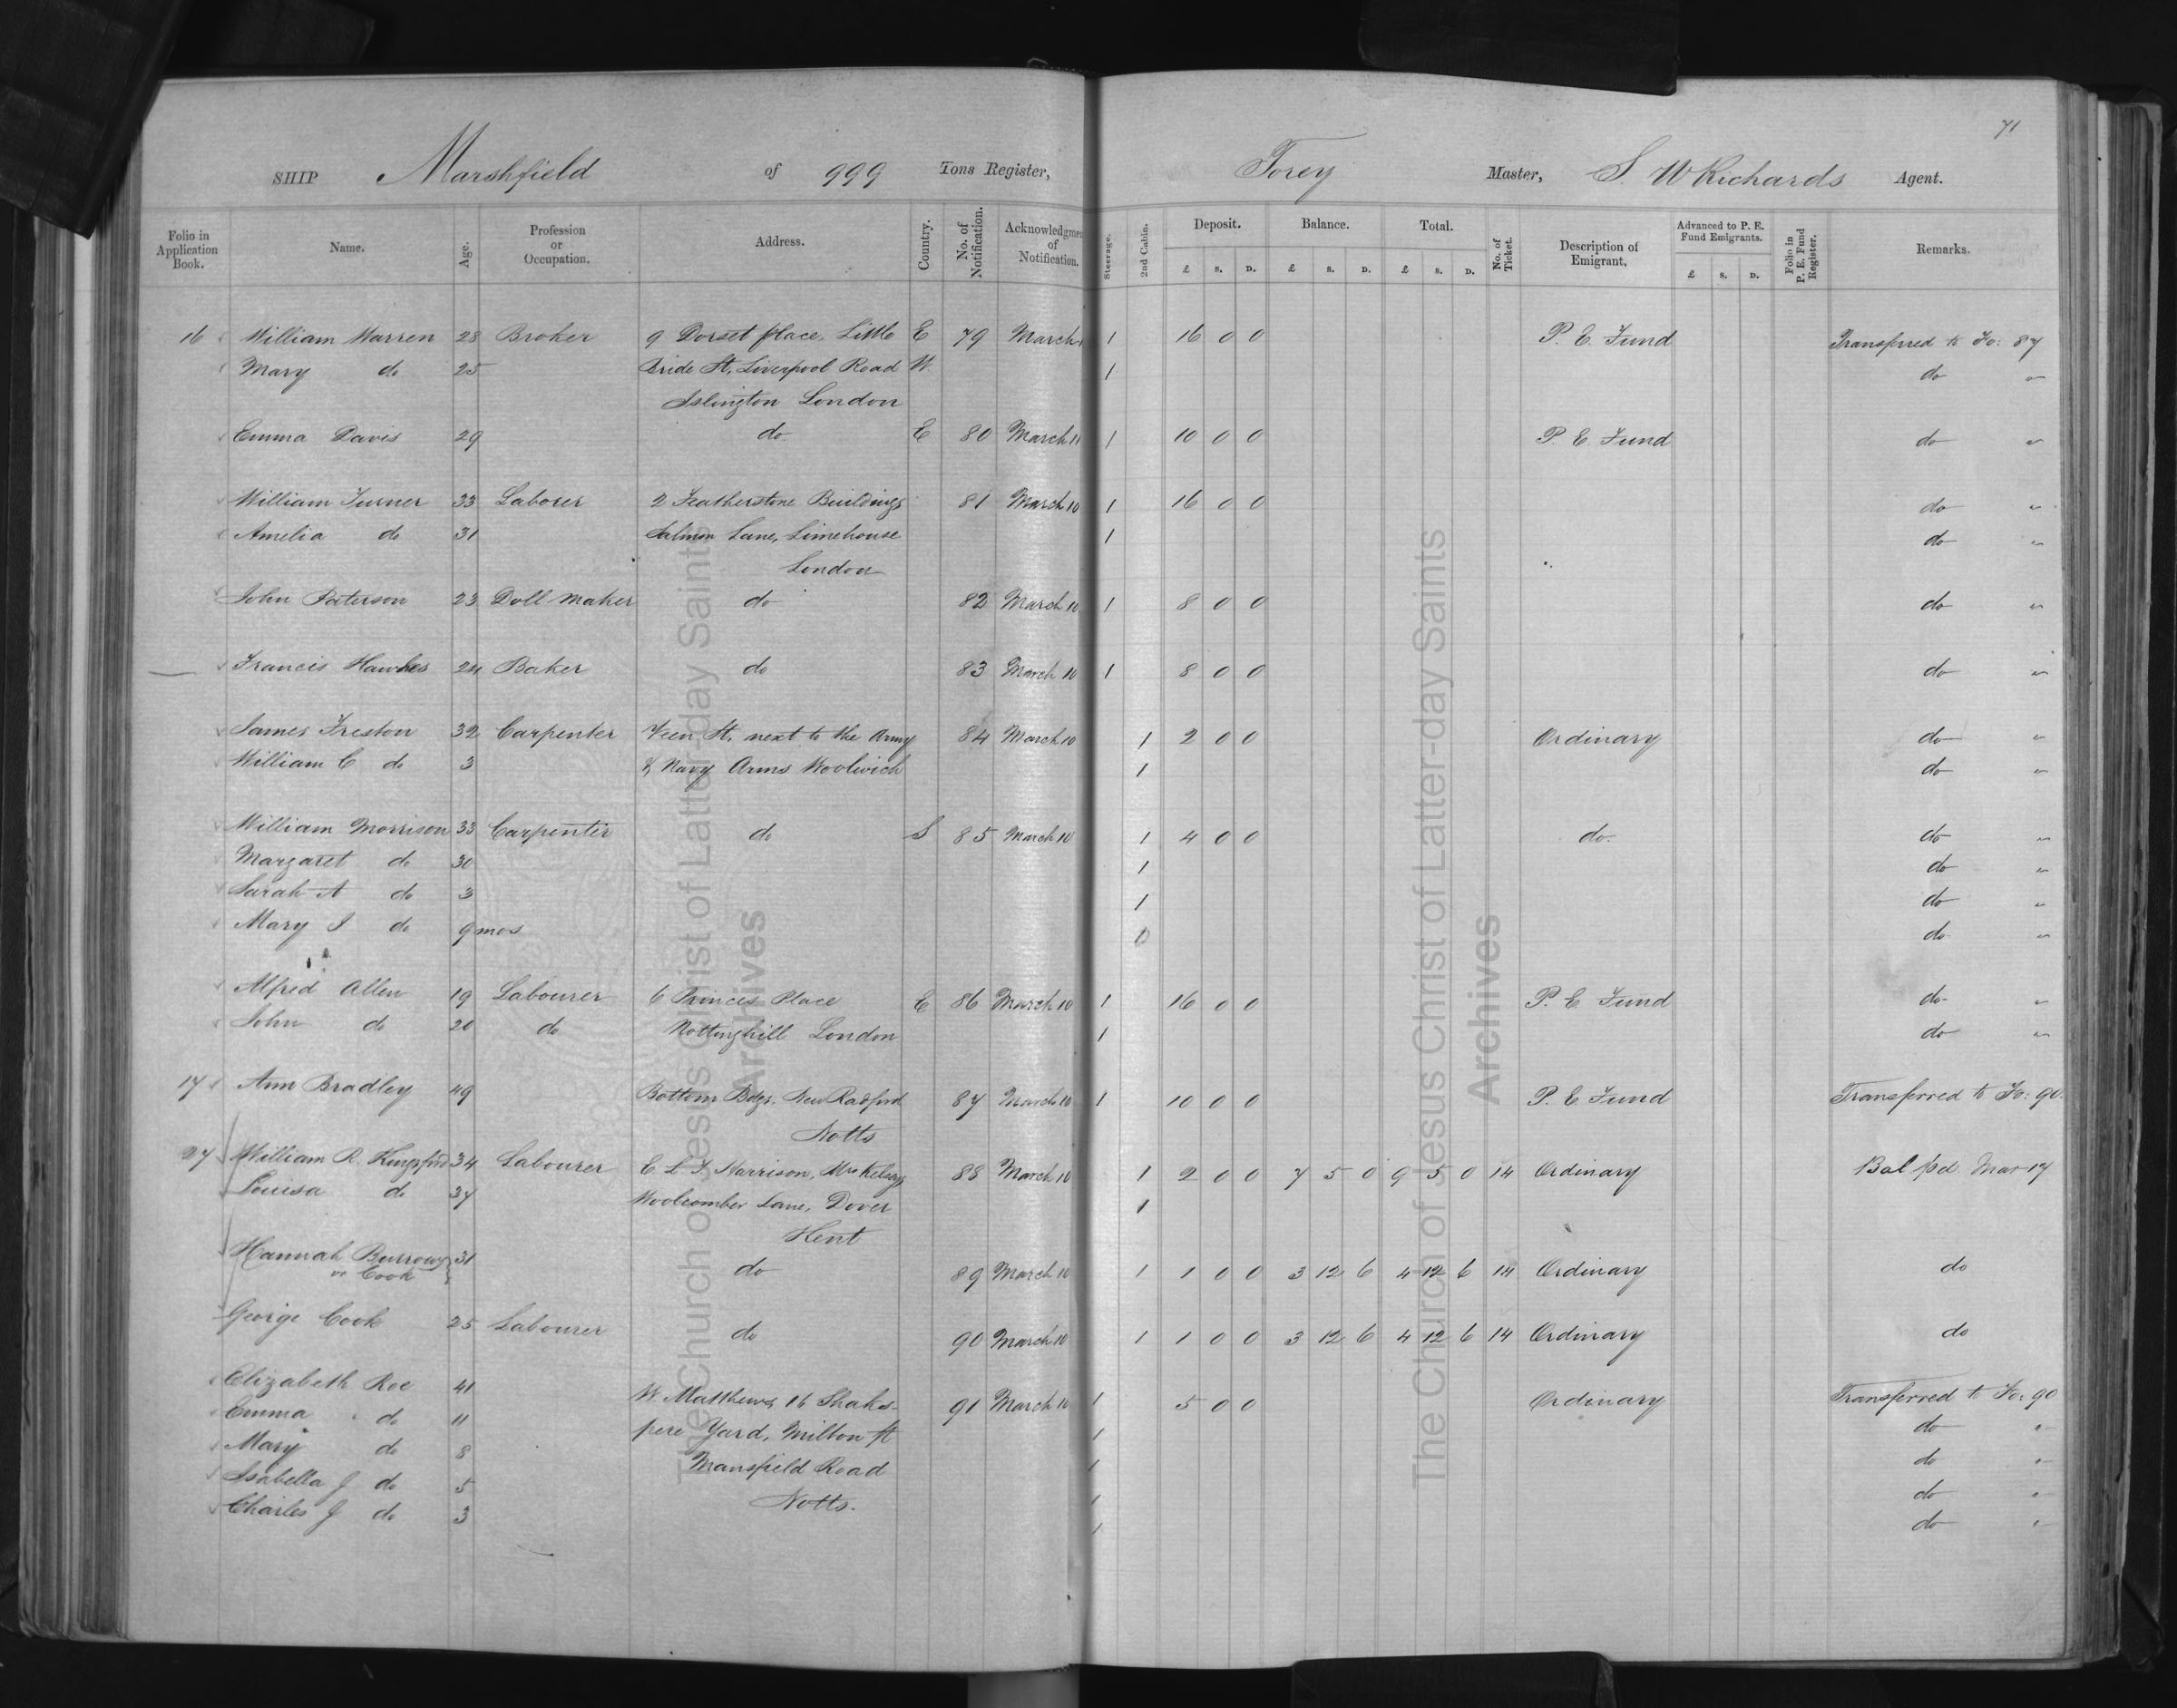 71
SHIP Marshfield of 999 Tons Register, Torey Master, S. W Richards Agent.
Folio in Application Book. Name. Age. Profession or Occupation. Address. Country. No. of Notification. Acknowledgment of Notification. Steerage. 2nd Cabin. Deposit. £ s. D. Balance. £ s. D. Total. £ s. D. No. of Ticket. Description of Emigrant. Advanced to P. E. Fund Emigrants. £ s. D. Folio in P. E. Fund Register. Remarks.
16 William Warren 28 Broker 9 Dorset place, Little E 79 March 1 16 0 0 P. E. Fund Transferred to Fo: 87
Mary do 25 Bride St, Liverpool Road W 1 do "
Islington London
Emma Davis 29 do E 80 March 11 1 10 0 0 P. E. Fund do "
William Turner 33 Laborer 2 Featherstone Buildings 81 March 10 1 16 0 0 do "
Amelia do 31 Salmon Lane, Limehouse 1 do "
London
John Paterson 23 Doll maker do 82 March 10 1 8 0 0 do "
Francis Hawkes 24 Baker do 83 March 10 1 8 0 0 do "
James Freston 32 Carpenter St, next to the Army 84 March 10 1 2 0 0 Ordinary do "
William C do 3 & Navy Arms Woolwich 1 do "
William Morrison 33 Carpenter do S 85 March 10 1 4 0 0 do. do "
Margaret do 30 1 do "
Sarah A do 3 1 do "
Mary I do 9 mos 0 do "
Alfred Allen 19 Labourer 6 Princes Place E 86 March 10 1 16 0 0 P. E. Fund do "
John do 20 do Nottinghill London 1 do "
17 Ann Bradley 49 Bottom Bdgs. New Radford 87 March 10 1 10 0 0 P. E. Fund Transferred to Fo: 90.
Notts
27 William R. Kingsford 34 Labourer E. L. T. Harrison, Mrs Kelsey 88 March 10 1 2 0 0 7 5 0 9 5 0 14 Ordinary Bal pd Mar 17
Louisa do 37 Woolcomber Lane, Dover 1
Kent
Hannah Burrows or Cook 31 do 89 March 10 1 1 0 0 3 12 6 4 12 6 14 Ordinary do
George Cook 25 Labourer do 90 March 10 1 1 0 0 3 12 6 4 12 6 14 Ordinary do
Elizabeth Roe 41 W Matthews 16 Shaks- 91 March 10 1 5 0 0 Ordinary Transferred to Fo: 90
Emma do 11 pere Yard, Milton St 1 do "
Mary do 8 Mansfield Road 1 do "
Isabella J do 5 Notts. 1 do "
Charles J do 3 1 do "
The Church of Jesus Christ of Latter-day Saints
Archives
The Church of Jesus Christ of Latter-day Saints
Archives